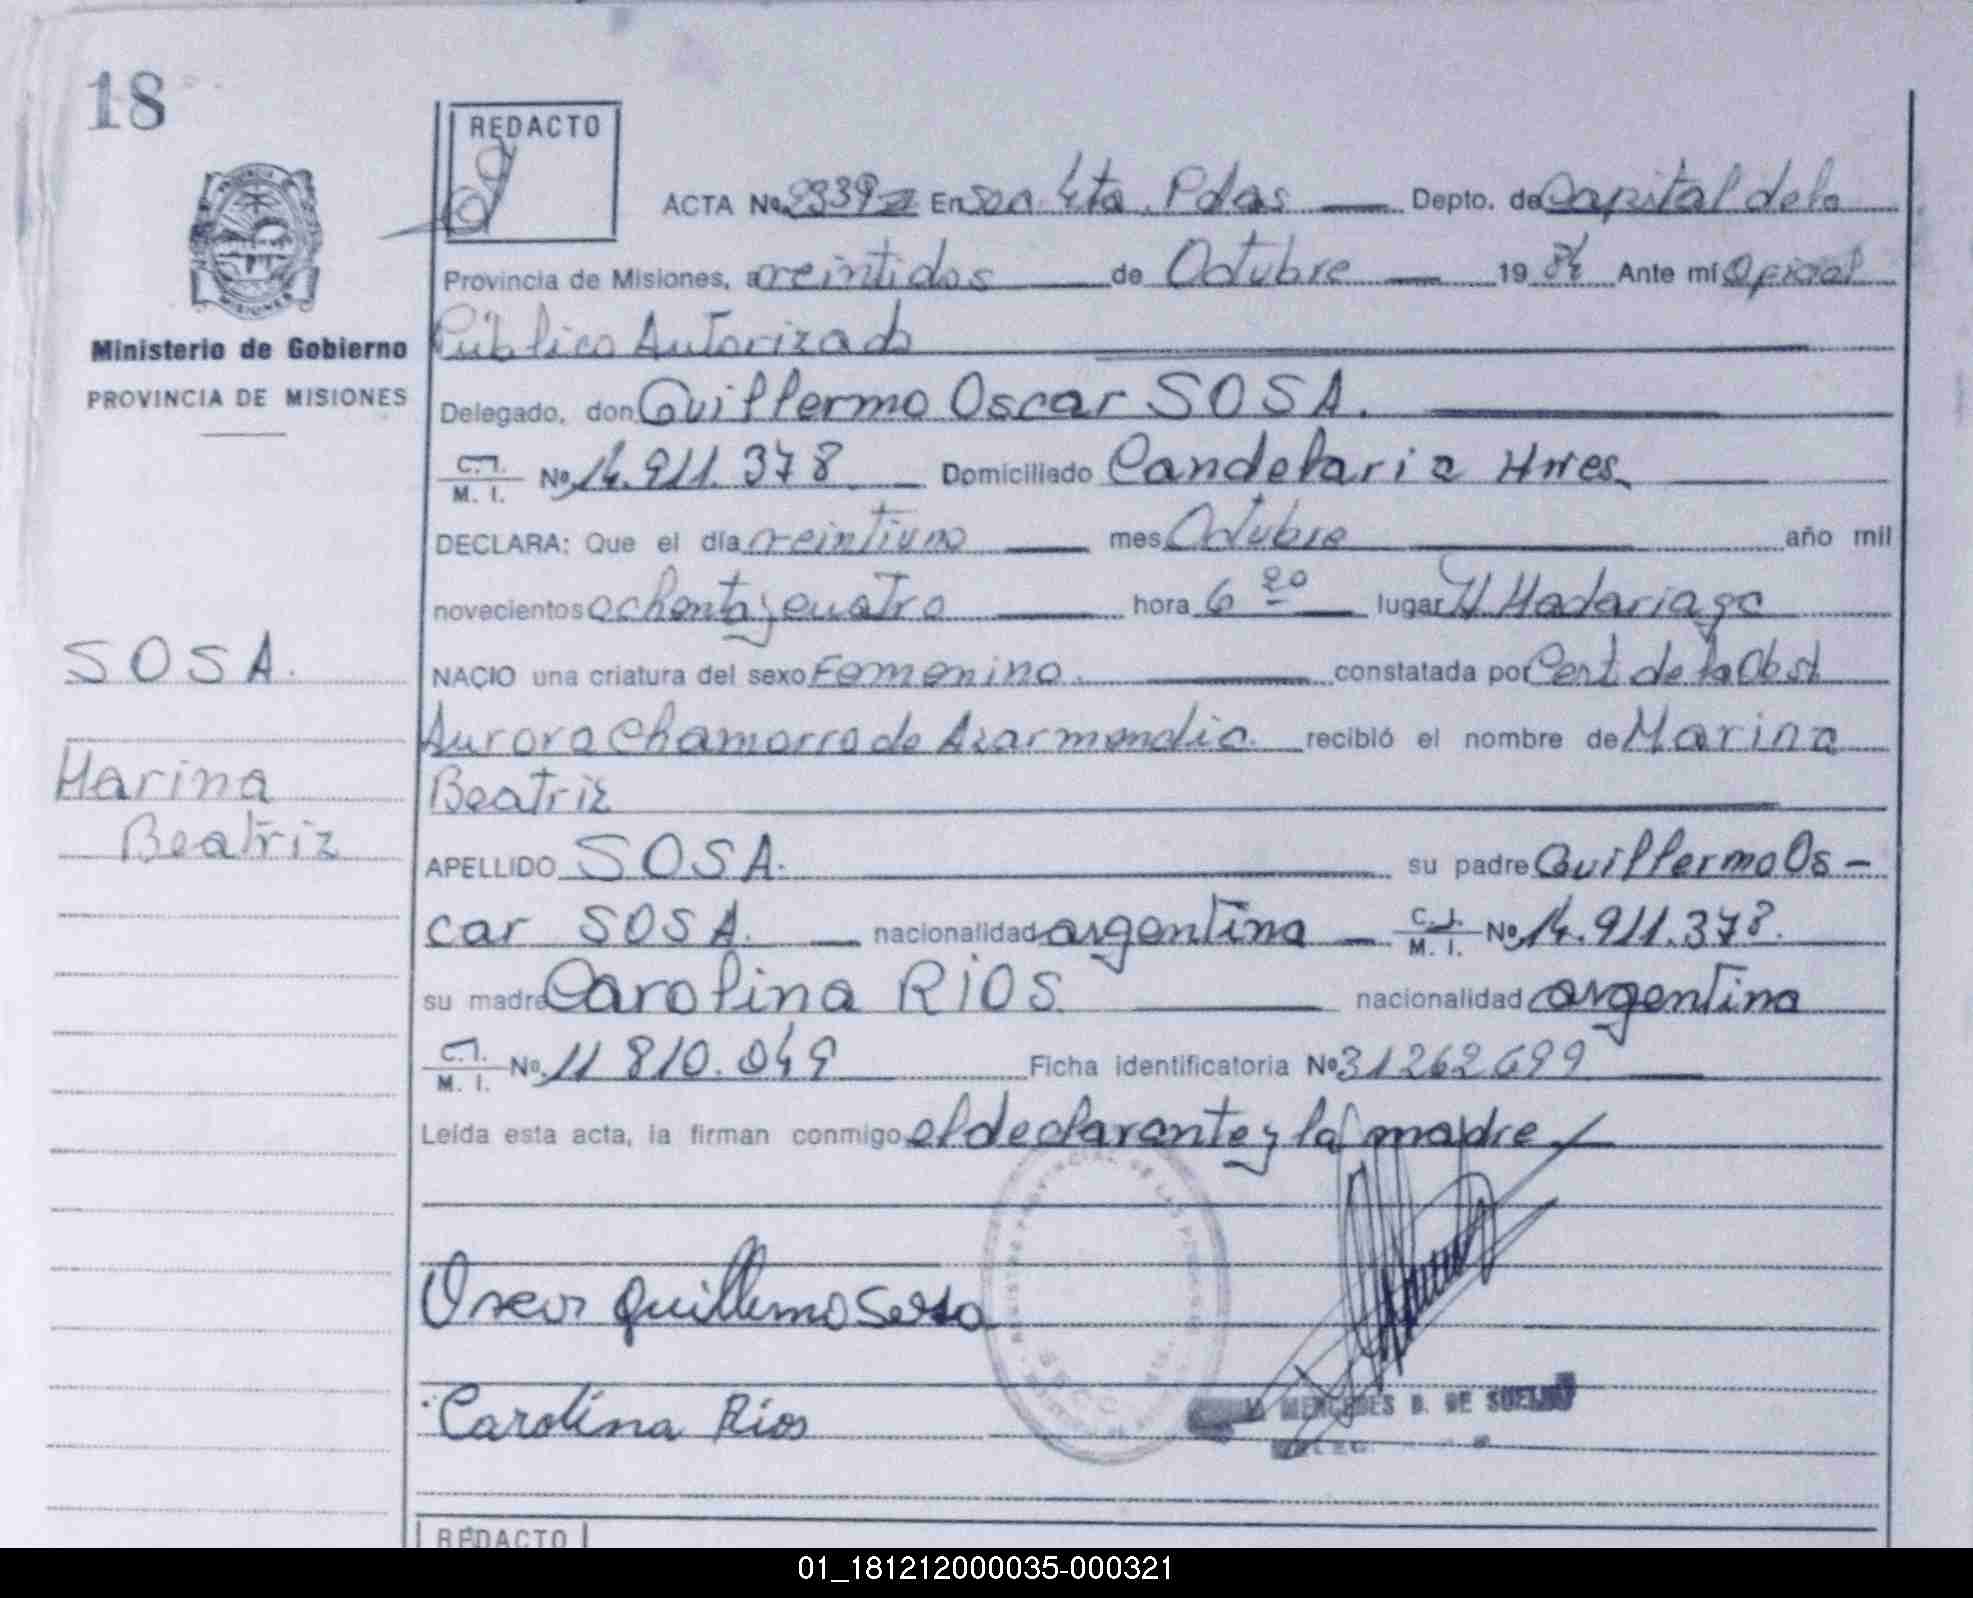 18
REDACTO
ACTA Nº 2339 En Sea 4ta. Pdas Depto. de Capital de la
Provincia de Misiones, a veintidos de Octubre 19 84 Ante mí Oficial
Público Autorizado
Ministerio de Gobierno
PROVINCIA DE MISIONES
Delegado, don Guillermo Oscar SOSA.
C.I. M. I. Nº 14.911.378 Domiciliado Candelaria Mnes.
DECLARA: Que el día veintiuno mes Octubre año mil
novecientos ochenta y cuatro hora 6 20 lugar H. Madariaga
SOSA.
NACIO una criatura del sexo Femenino. constatada por Cert. de la Obst
Aurora Chamorro de Azarmendia. recibió el nombre de Marina
Marina
Beatriz
Beatriz
APELLIDO SOSA. su padre Guillermo Os-
car SOSA. nacionalidad argentina C.I. M. I. Nº 14.911.378.
su madre Carolina RIOS. nacionalidad argentina
C.I. M. I. Nº 11 810.049 Ficha identificatoria Nº 31262699
Leída esta acta, la firman conmigo el declarante y la madre
Oscar Guillermo Sosa
MERCEDES B. DE
Carolina Rios
REDACTO
01_181212000035-000321